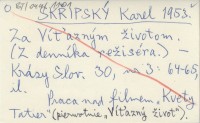 ŠKRIPSKÝ Karel 1953.
Za Víťazným životom.
(Z denníka režiséra) –
Krásy Slov. 30, na 3: 64-65,
il.
Praca nad filmem „Kvety
Tatier" (pierwotnie „Víťazný život").